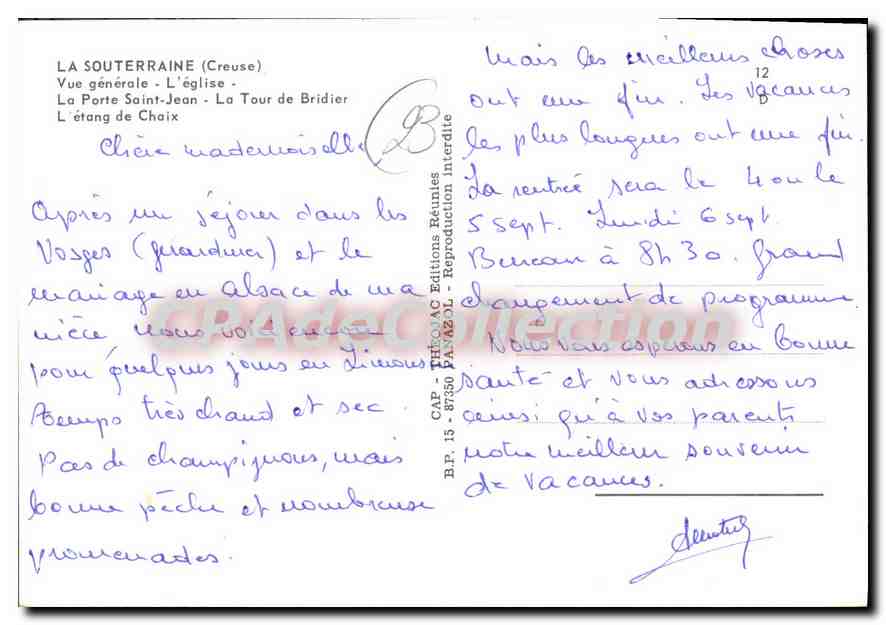 LA SOUTERRAINE (Creuse)
Vue générale - L'église -
La Porte Saint-Jean - La Tour de Bridier
L'étang de Chaix
B
Chère mademoiselle
Après un séjour dans les
Vosges (gérardmer) et le
mariage en Alsace de ma
nièce nous voici encore
pour quelques jours en Limousin
temps très chaud et sec.
Pas de champignons, mais
bonne pêche et nombreuse
promenades.
CAP - THEOJAC Editions Réunies
B.P. 15 - 87350 PANAZOL - Reproduction interdite
12
D
Mais les meilleurs choses
ont une fin. Les vacances
les plus longues ont une fin.
La rentrée sera le 4 ou le
5 sept. Lundi 6 sept.
Bureau à 8h30. Grand
changement de programme.
Nous vous espérons en bonne
santé et vous adressons
ainsi qu'à vos parents
notre meilleur souvenir
de vacances.
CPAdeCollection